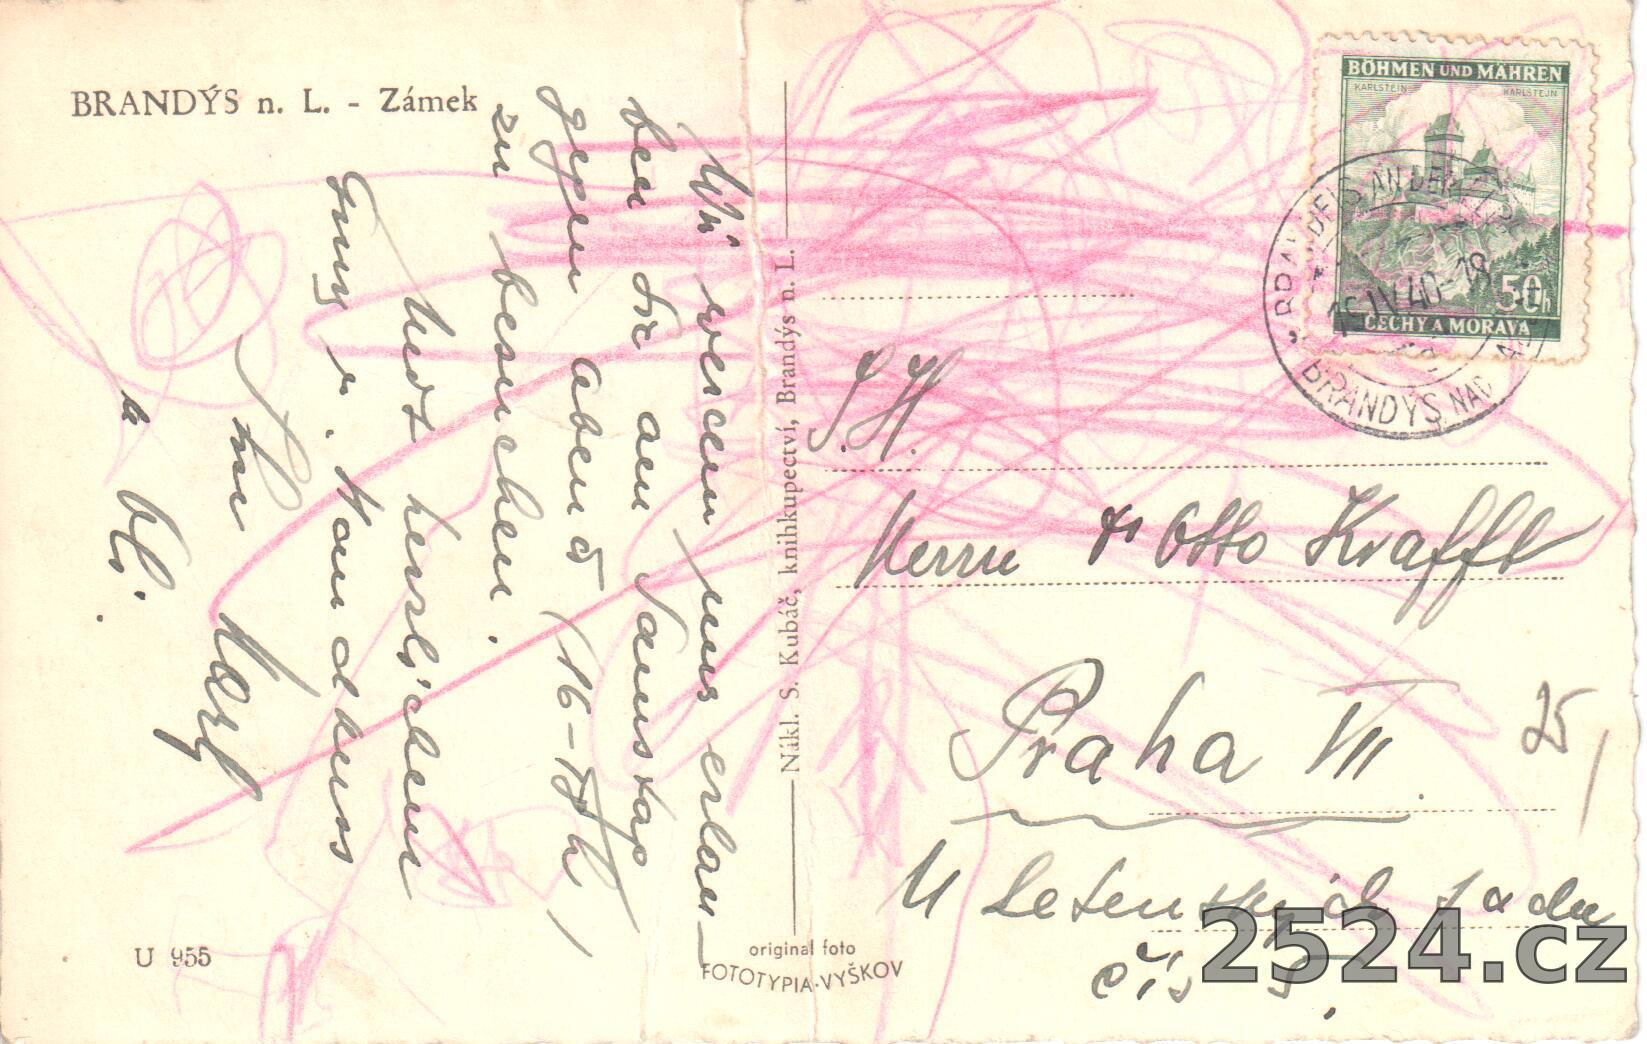 BRANDÝS n. L. - Zámek
Wir werden uns erlau-
ben Sie am Samstag
gegen abend (16-18h)
zu besuchen.
Mit herzlichen
Ihr
Karl
U 955
Nákl. S. Kubáč, knihkupectví, Brandýs n. L.
original foto
FOTOTYPIA·VYŠKOV
BÖHMEN UND MÄHREN
KARLSTEIN
KARLŠTEJN
50h
ČECHY A MORAVA
BRANDEIS AN DER ELBE
15.IV.40-18
BRANDÝS NAD
Herrn Dr Otto Krafft
Praha VII.
25
U Letenských sadů
čís 5,
2524.cz